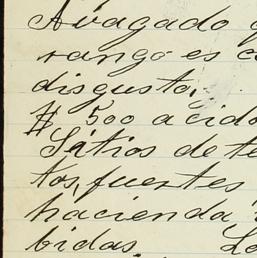 Abagado
rango es
disgusta,
$ 500 acido
Sitios de te
tos, fuertes
hacienda
bidas Lo